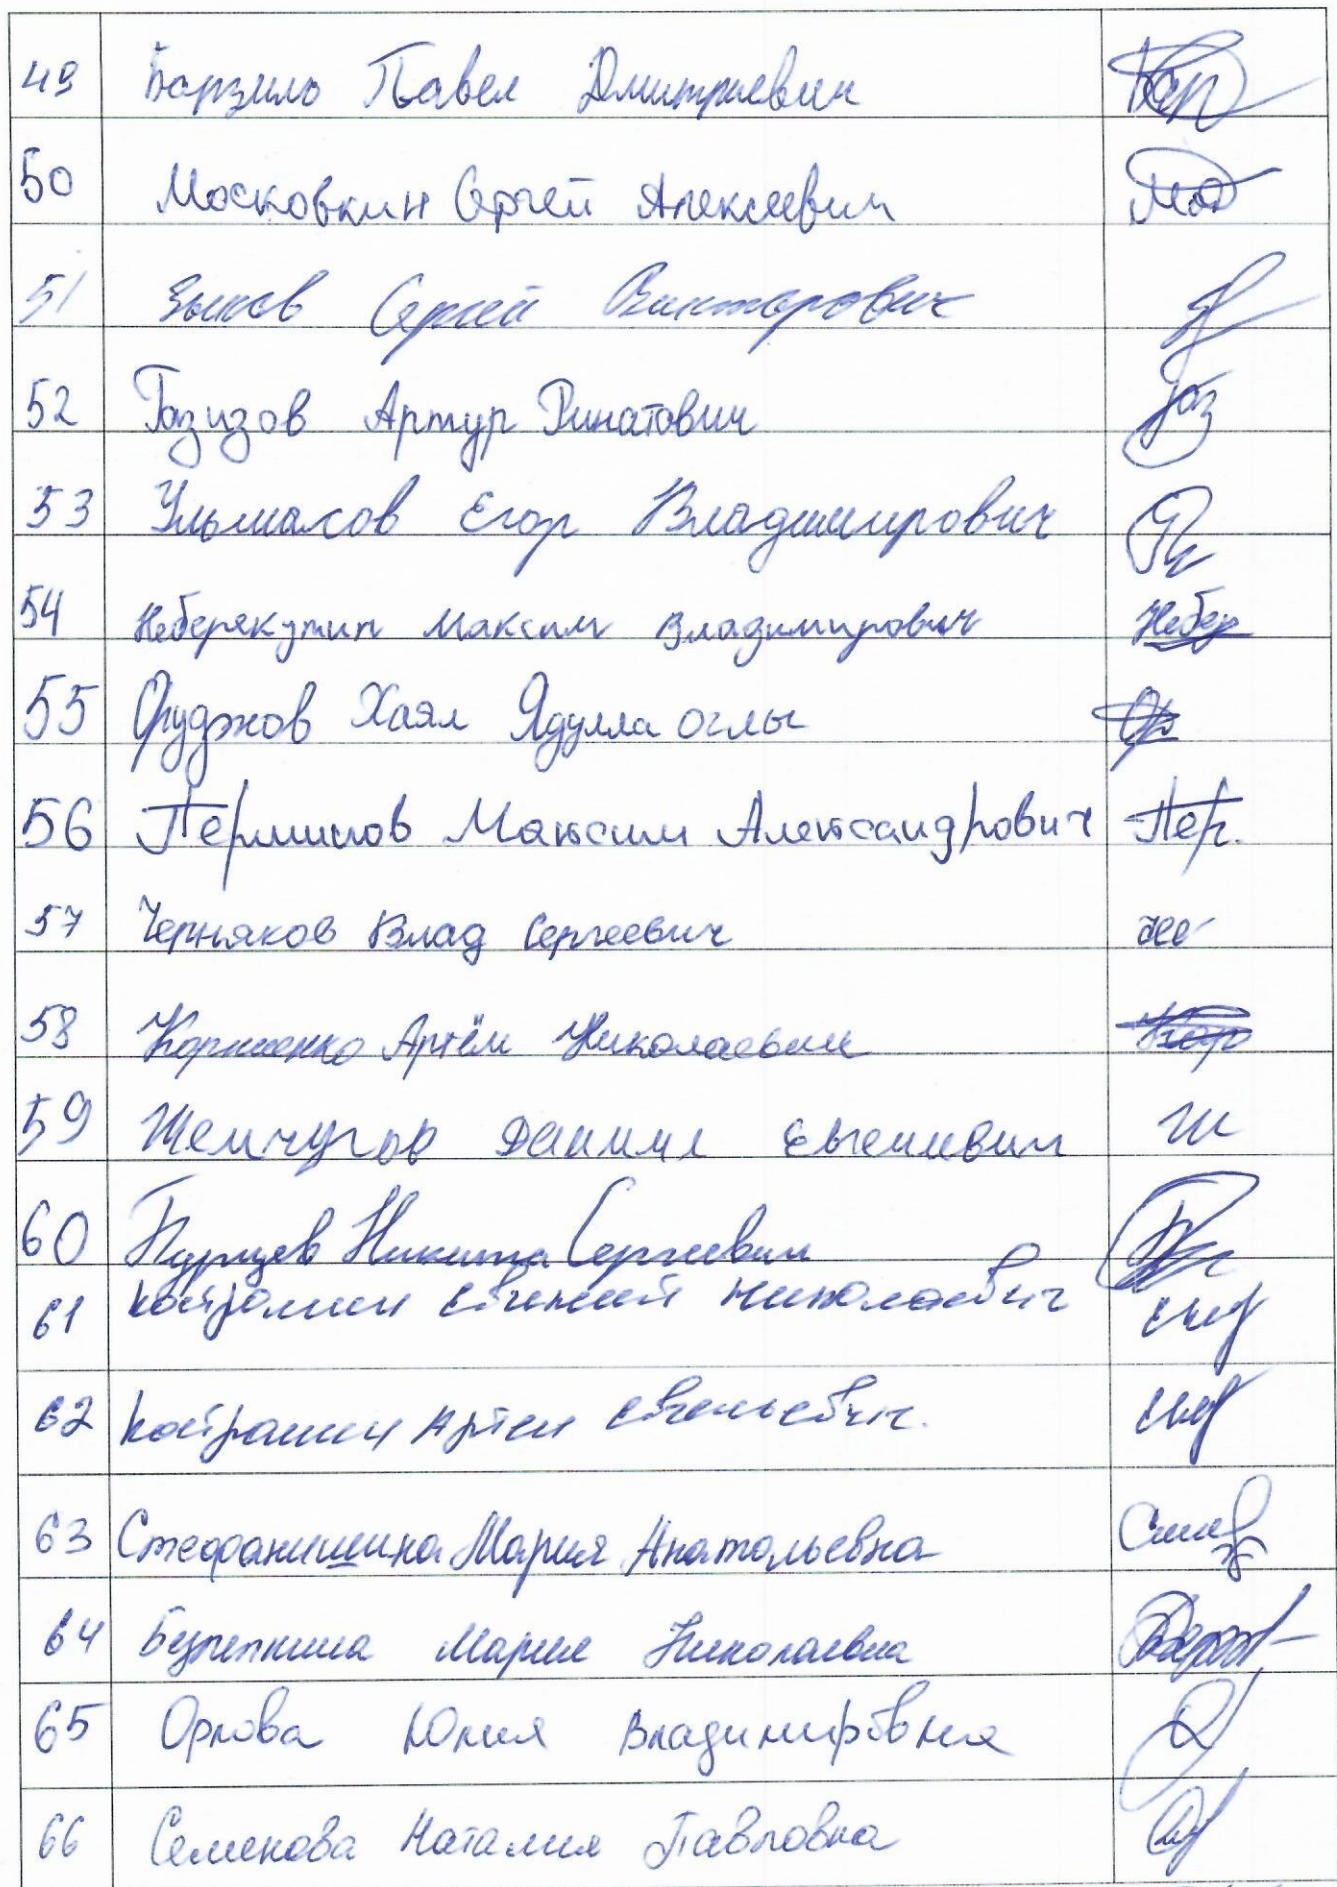 49 Барзило Павел Дмитриевич Бар
50 Московкин Сергей Алексеевич Мос
51 Зыков Сергей Викторович
52 Газизов Артур Ринатович Газ
53 Ульмасов Егор Владимирович
54 Неберекутин Максим Владимирович Небер
55 Оруджов Хаял Ядулла оглы
56 Перминов Максим Александрович Пер.
57 Черняков Влад Сергеевич
58 Корниенко Артём Николаевич Кор
59 Жемчугов Даниил Евгениевич Ж
60 Пурцев Никита Сергеевич
61 Костромин Евгений Николаевич
62 Костромин Артем Евгеньевич.
63 Стефанишина Мария Анатольевна
64 Мария Николаевна
65 Орлова Юлия Владимировна
66 Семенова Наталия Павловна